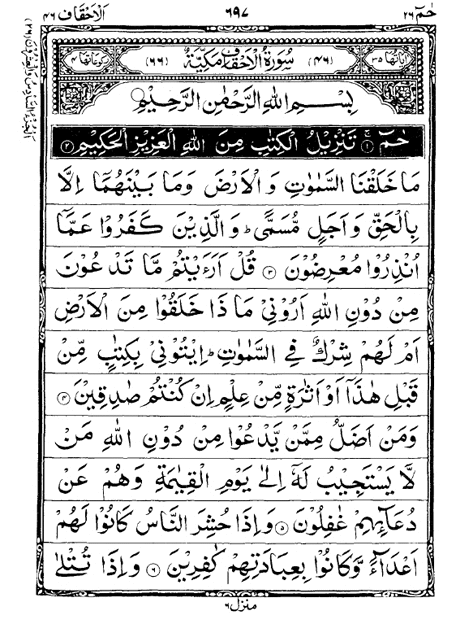 حٰمٓ ٢٦
٦٩٧
الاحقاف ٤٦
اٰيَاتُهَا ٣٥
(٤٦) سُوْرَةُ الْاَحْقَافِ مَكِّيَّةٌ (٦٦)
رُكُوْعَاتُهَا ٤
بِسْمِ اللهِ الرَّحْمٰنِ الرَّحِيْمِ
حٰمٓ ۚ ١ تَنْزِيْلُ الْكِتٰبِ مِنَ اللهِ الْعَزِيْزِ الْحَكِيْمِ ٢
مَا خَلَقْنَا السَّمٰوٰتِ وَ الْاَرْضَ وَمَا بَيْنَهُمَا اِلَّا
بِالْحَقِّ وَ اَجَلٍ مُّسَمًّى ؕ وَ الَّذِيْنَ كَفَرُوْا عَمَّاۤ
اُنْذِرُوْا مُعْرِضُوْنَ ٣ قُلْ اَرَءَيْتُمْ مَّا تَدْعُوْنَ
مِنْ دُوْنِ اللهِ اَرُوْنِيْ مَا ذَا خَلَقُوْا مِنَ الْاَرْضِ
اَمْ لَهُمْ شِرْكٌ فِي السَّمٰوٰتِ ؕ اِيْتُوْنِيْ بِكِتٰبٍ مِّنْ
قَبْلِ هٰذَاۤ اَوْ اَثٰرَةٍ مِّنْ عِلْمٍ اِنْ كُنْتُمْ صٰدِقِيْنَ ٤
وَمَنْ اَضَلُّ مِمَّنْ يَّدْعُوْا مِنْ دُوْنِ اللهِ مَنْ
لَّا يَسْتَجِيْبُ لَهٗۤ اِلٰى يَوْمِ الْقِيٰمَةِ وَهُمْ عَنْ
دُعَآئِهِمْ غٰفِلُوْنَ ٥ وَاِذَا حُشِرَ النَّاسُ كَانُوْا لَهُمْ
اَعْدَآءً وَّكَانُوْا بِعِبَادَتِهِمْ كٰفِرِيْنَ ٦ وَاِذَا تُتْلٰى
منزل ٦